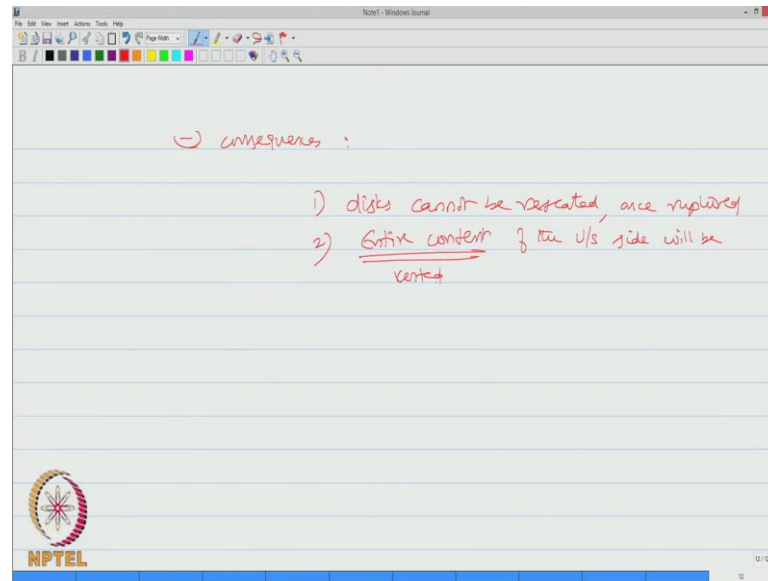 Note1 - Windows Journal
File Edit View Insert Actions Tools Help
Page Width
B I
(-) consequences :
1) disks cannot be reseated, once ruptured
2) Entire content of the U/S side will be
vented
NPTEL
12 / 12
12